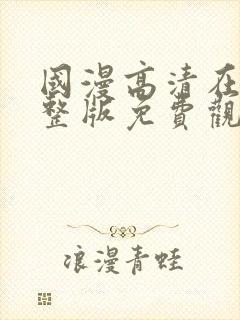 國漫高清在
整版免費觀
浪漫青蛙